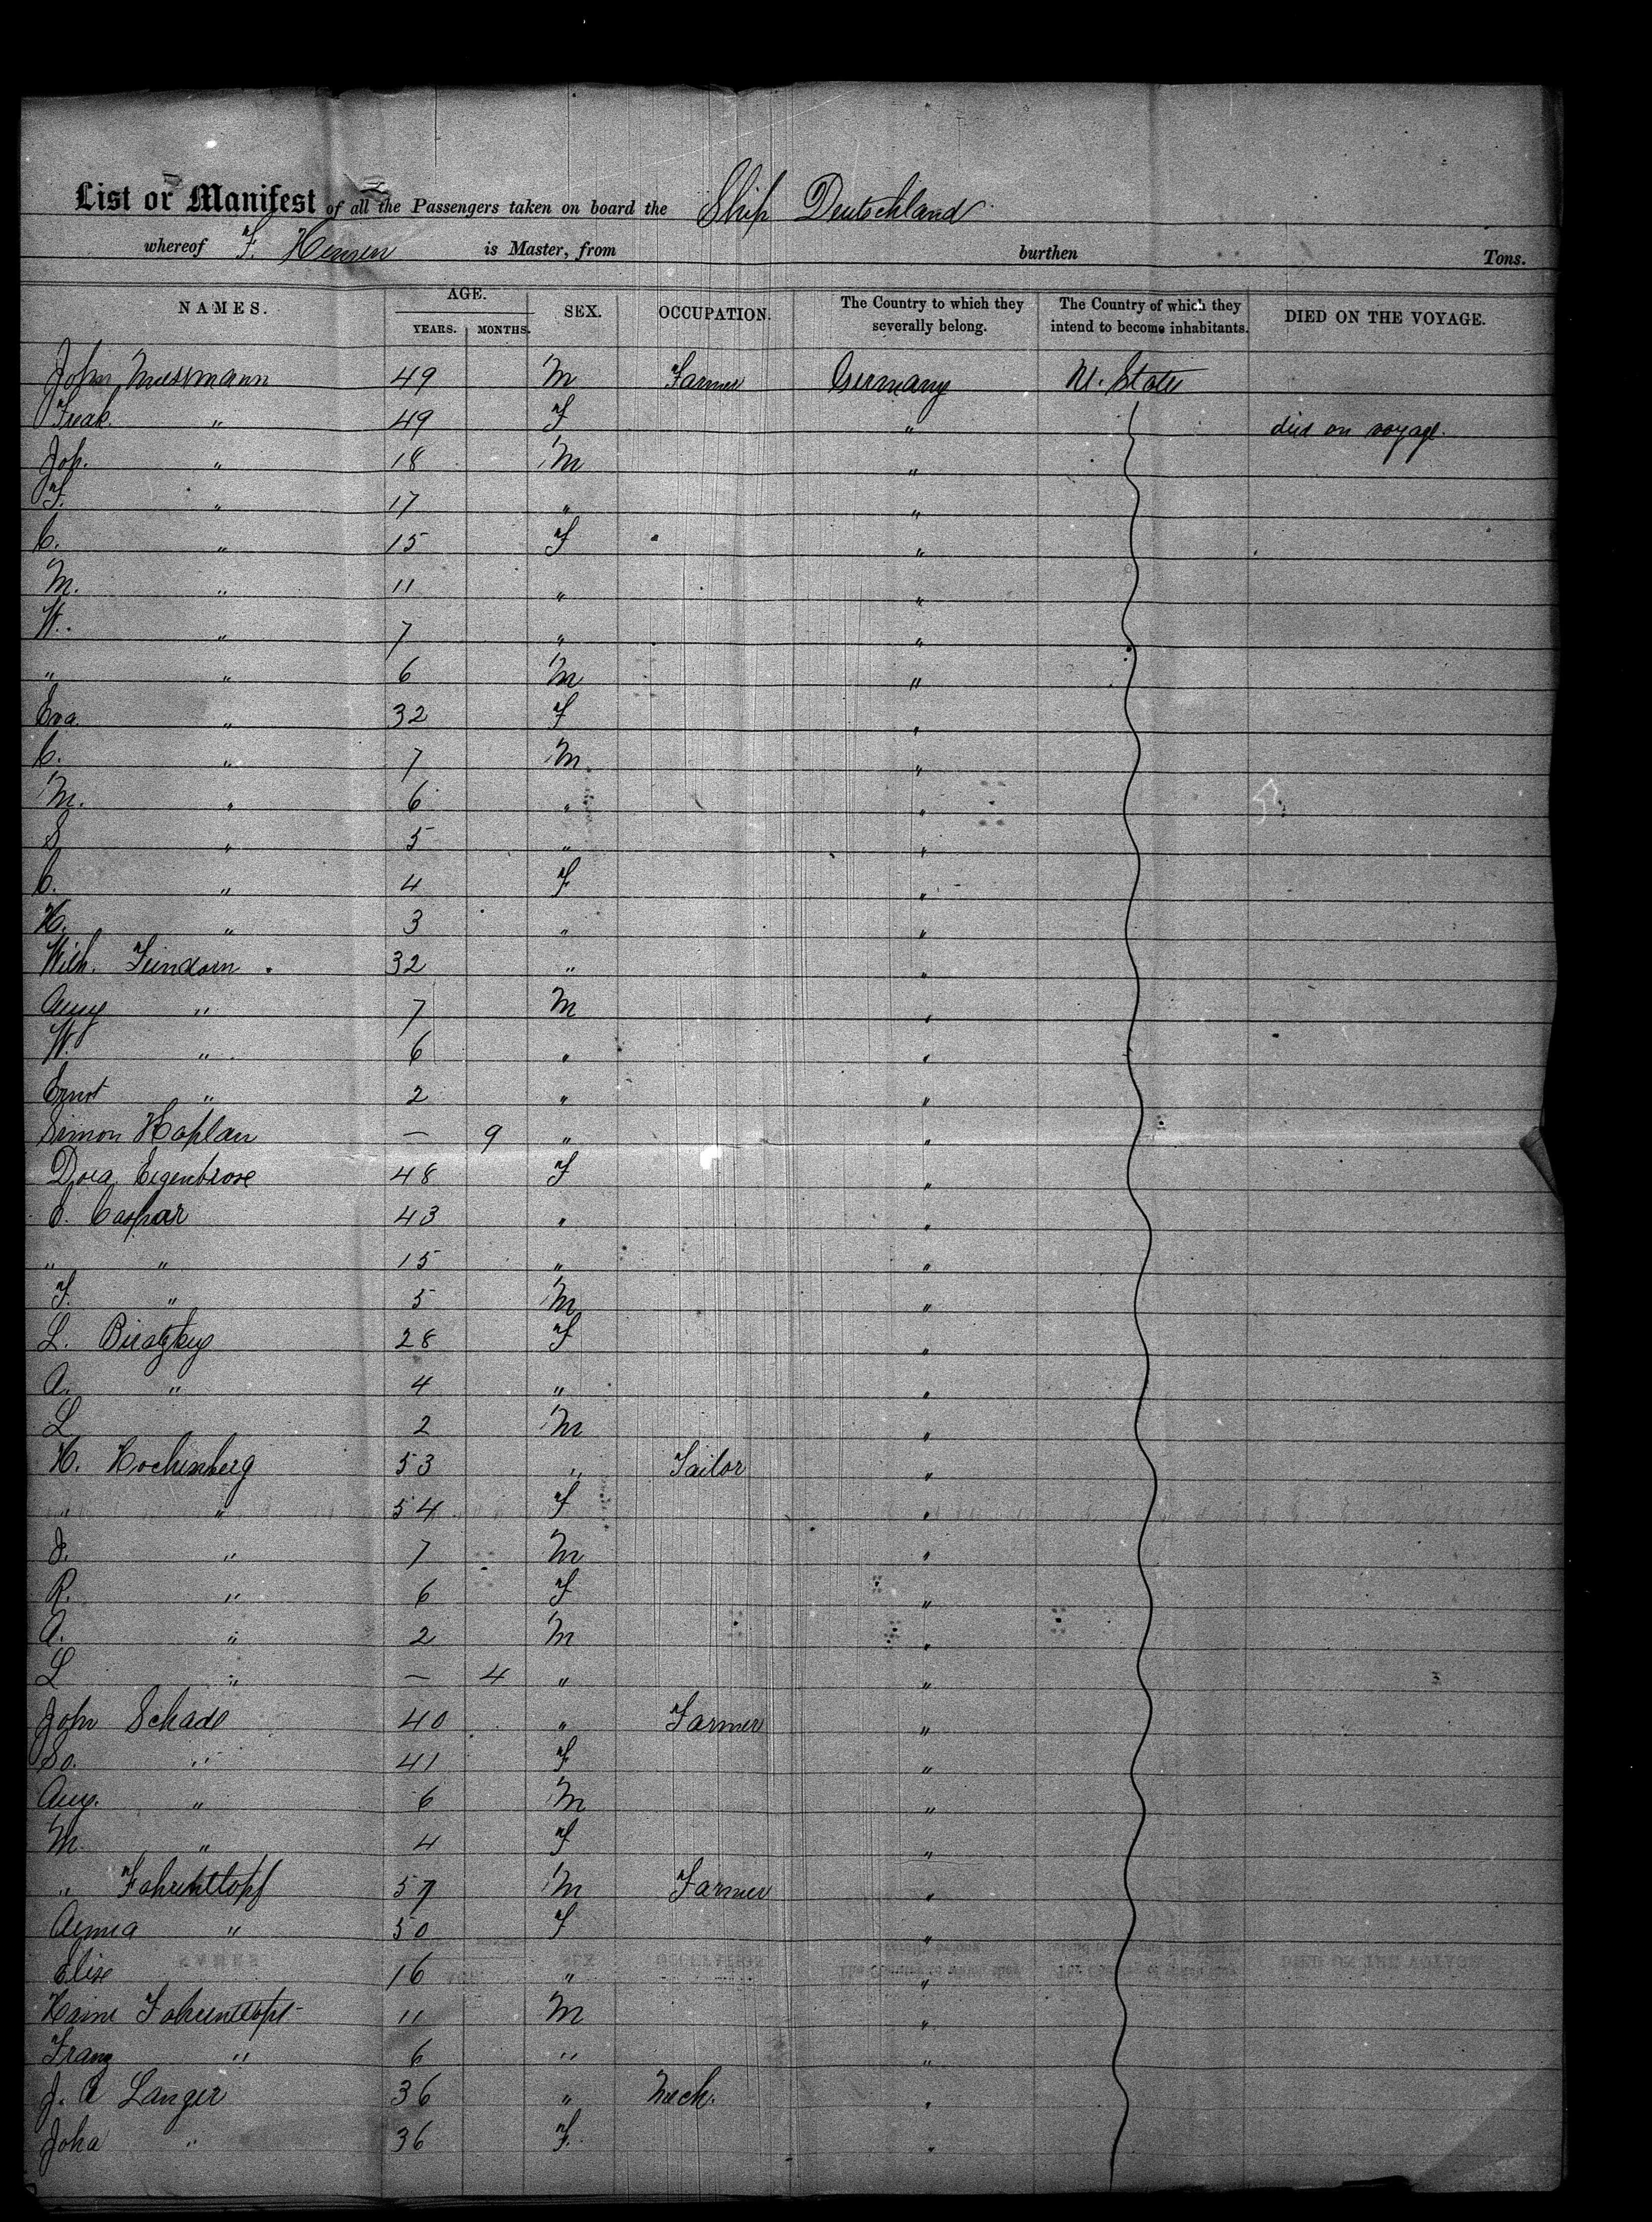 List or Manifest of all the Passengers taken on board the Ship Deutschland
whereof F. Hensen is Master, from burthen Tons.
NAMES. AGE. YEARS. MONTHS. SEX. OCCUPATION. The Country to which they severally belong. The Country of which they intend to become inhabitants. DIED ON THE VOYAGE.
John 49 M Farmer Germany U. States
" 49 F " died on voyage.
Joh. " 18 M "
F. " 17 " "
C. " 15 F "
M. " 11 " "
W. " 7 " "
" " 6 M "
Eva " 32 F "
C. " 7 M "
M. " 6 " "
S " 5 " "
C. " 4 F "
H. " 3 " "
Wilh. 32 " "
" 7 M "
W. " 6 " "
Ernst " 2 " "
Simon Kaplan — 9 " "
Dora 48 F "
C. Caspar 43 " "
" " 15 " "
F. " 5 M "
L. 28 F "
A. " 4 " "
L 2 M "
H. Hochenberg 53 " Tailor "
" " 54 F "
J. " 7 M "
R. " 6 F "
A. " 2 M "
L " — 4 " "
John Schade 40 " Farmer "
So. " 41 F "
Aug. " 6 M "
M. " 4 F "
" 57 M Farmer "
" 50 F "
Elise 16 " "
11 M "
Franz " 6 " "
J. A Langer 36 " Mech. "
Joha " 36 F. "